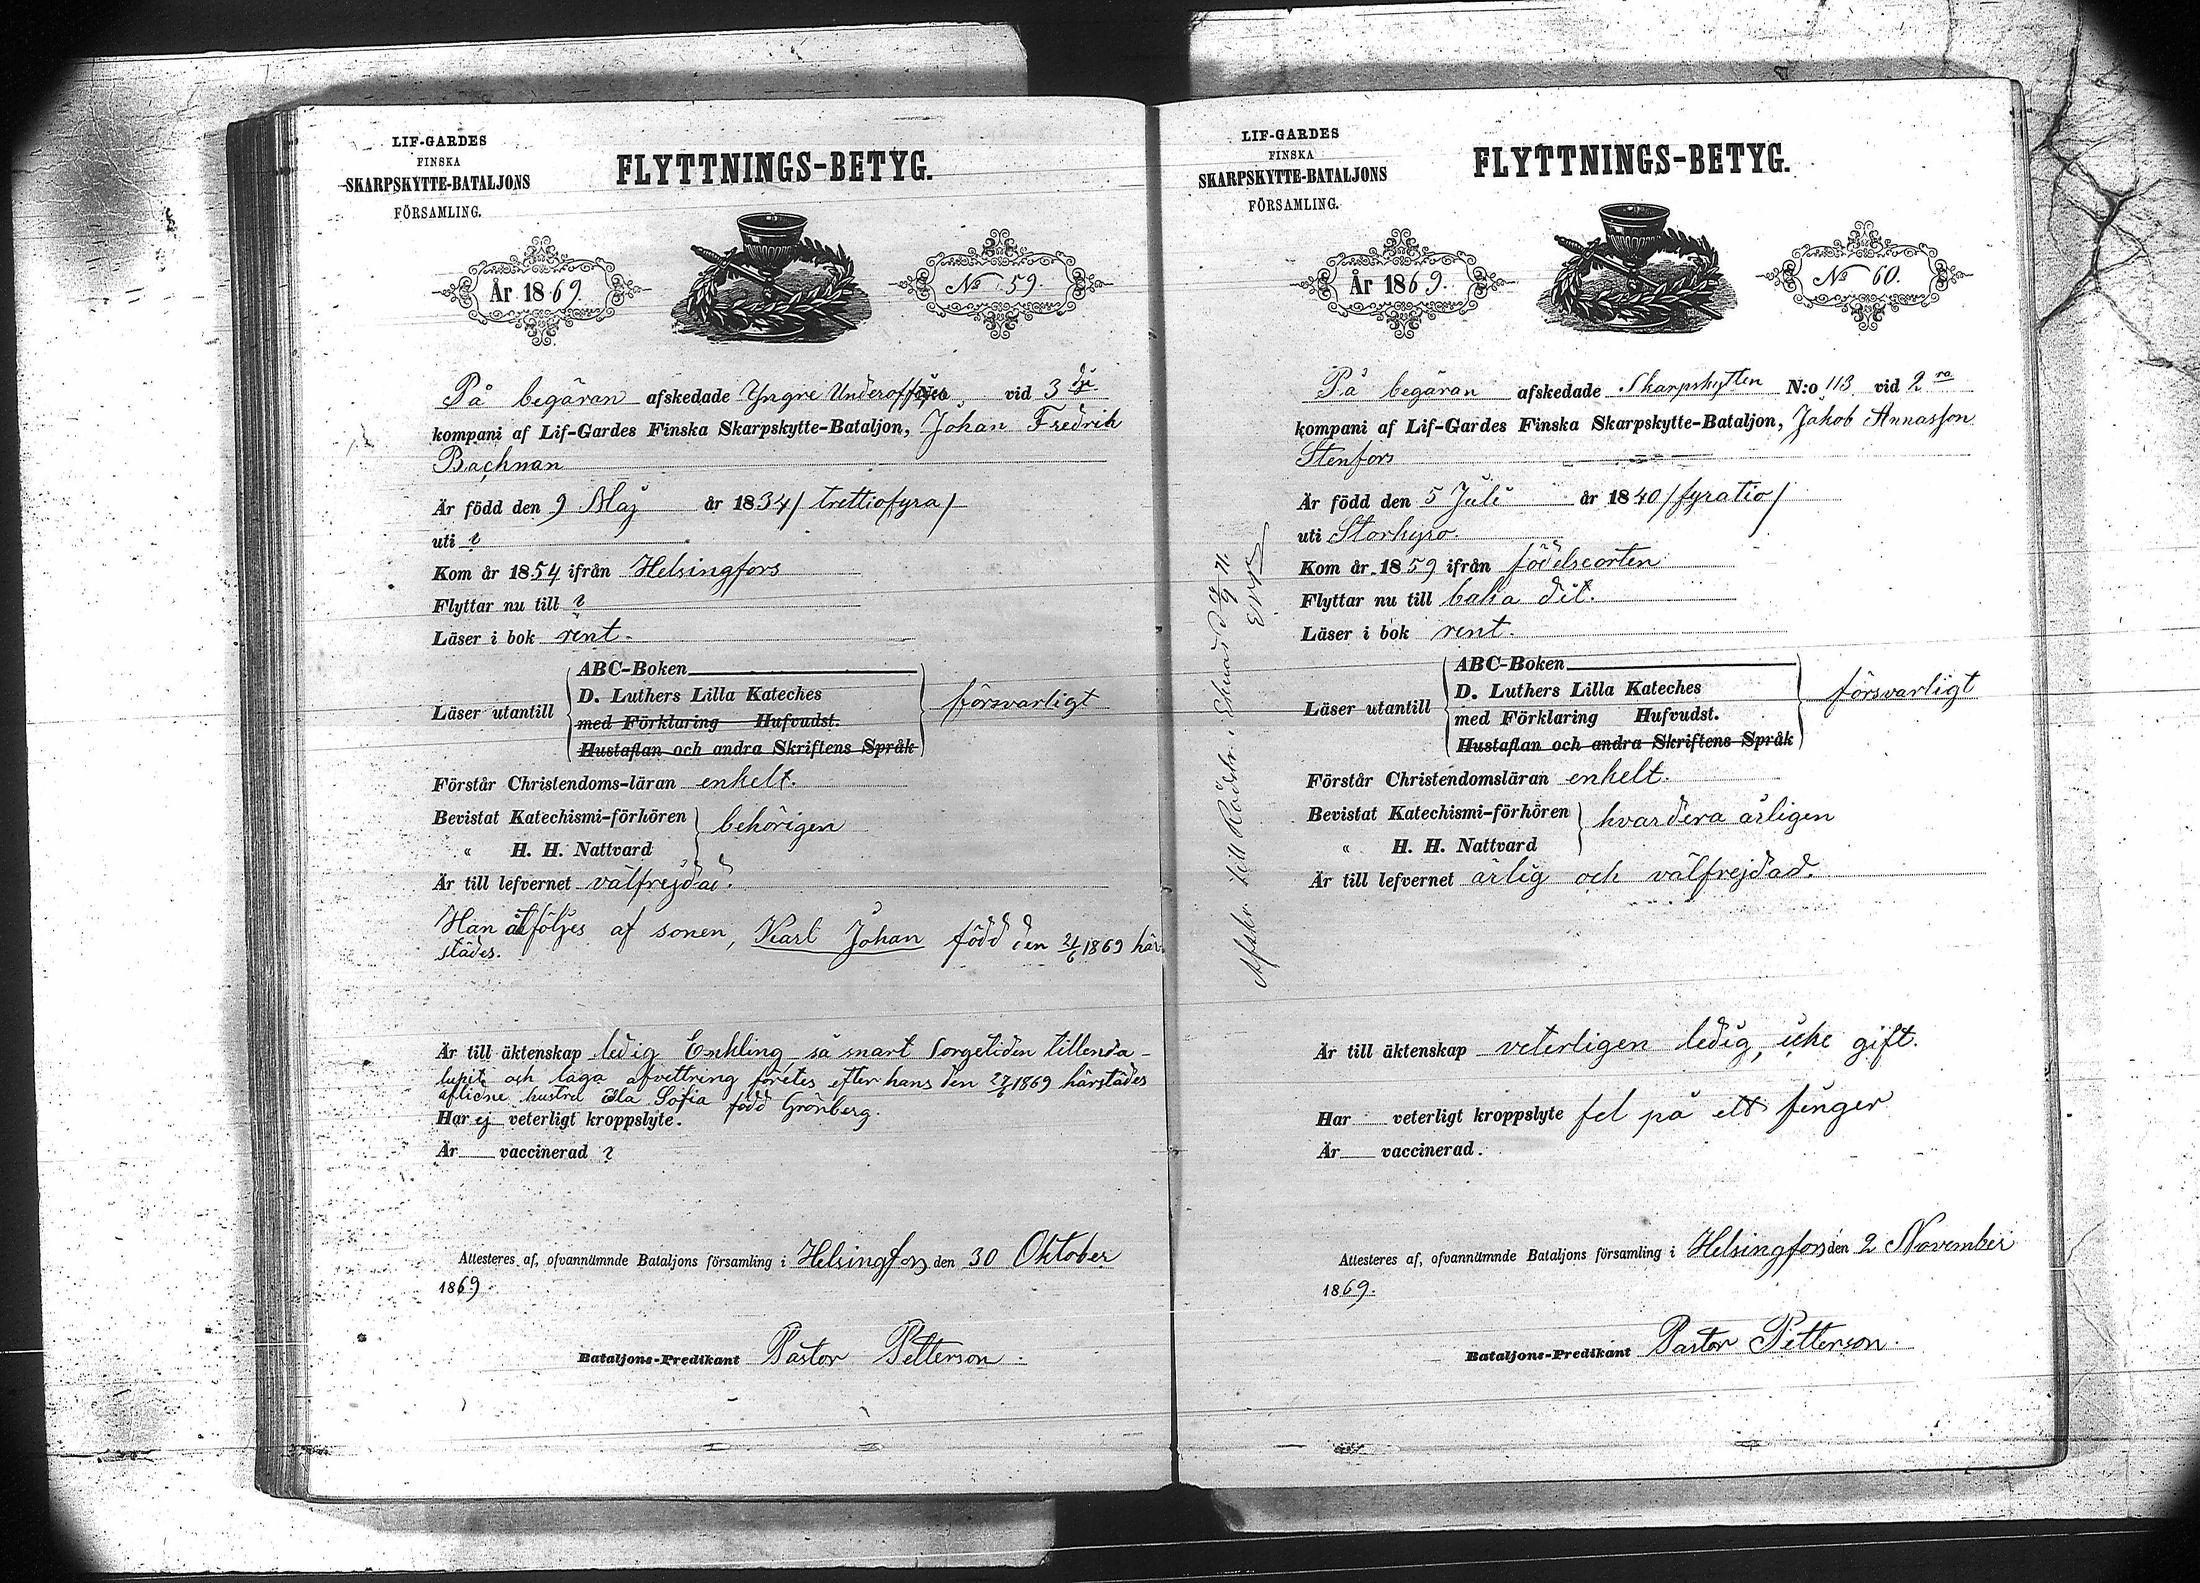 LIF-GARDES
FINSKA
SKARPSKYTTE-BATALJONS
FÖRSAMLING.
FLYTTNINGS-BETYG.
År 1869.
No 59.
På begäran afskedade Yngre Underofficer, vid 3dje
kompani af Lif-Gardes Finska Skarpskytte-Bataljon, Johan Fredrik
Bachman
Är född den 9 Maj år 1834 / trettiofyra /
uti ?
Kom år 1854 ifrån Helsingfors
Flyttar nu till ?
Läser i bok rent.
Läser utantill
ABC-Boken
D. Luthers Lilla Kateches
med Förklaring Hufvudst.
Hustaflan och andra Skriftens Språk
försvarligt
Förstår Christendoms-läran enkelt.
Bevistat Katechismi-förhören
" H. H. Nattvard
behörigen
Är till lefvernet välfrejdad.
Han åtföljes af sonen, Karl Johan född den 21/6 1869 här-
städes.
Är till äktenskap ledig Enkling så snart sorgetiden tillenda-
lupit och laga afvittring företes efter hans den 27/6 1869 härstädes
aflidne hustru Eda Sofia född Grönberg.
Har ej veterligt kroppslyte.
Är vaccinerad ?
Attesteres af, ofvannämnde Bataljons församling i Helsingfors den 30 Oktober
1869.
Bataljons-Predikant Pastor Petterson.
LIF-GARDES
FINSKA
SKARPSKYTTE-BATALJONS
FÖRSAMLING.
FLYTTNINGS-BETYG.
År 1869.
No 60.
På begäran afskedade Skarpskytten N:o 113 vid 2ra
kompani af Lif-Gardes Finska Skarpskytte-Bataljon, Jakob Annasson
Stenfors
Är född den 5 Juli år 1840 / fyratio /
uti Storkyro.
Kom år 1859 ifrån födelseorten
Flyttar nu till baka dit.
Läser i bok rent.
Läser utantill
ABC-Boken
D. Luthers Lilla Kateches
med Förklaring Hufvudst.
Hustaflan och andra Skriftens Språk
försvarligt
Förstår Christendomsläran enkelt.
Bevistat Katechismi-förhören
" H. H. Nattvard
hvardera årligen
Är till lefvernet ärlig och välfrejdad.
Är till äktenskap veterligen ledig, icke gift.
Har veterligt kroppslyte fel på ett finger
Är vaccinerad.
Attesteres af, ofvannämnde Bataljons församling i Helsingfors den 2 November
1869.
Bataljons-Predikant Pastor Petterson.